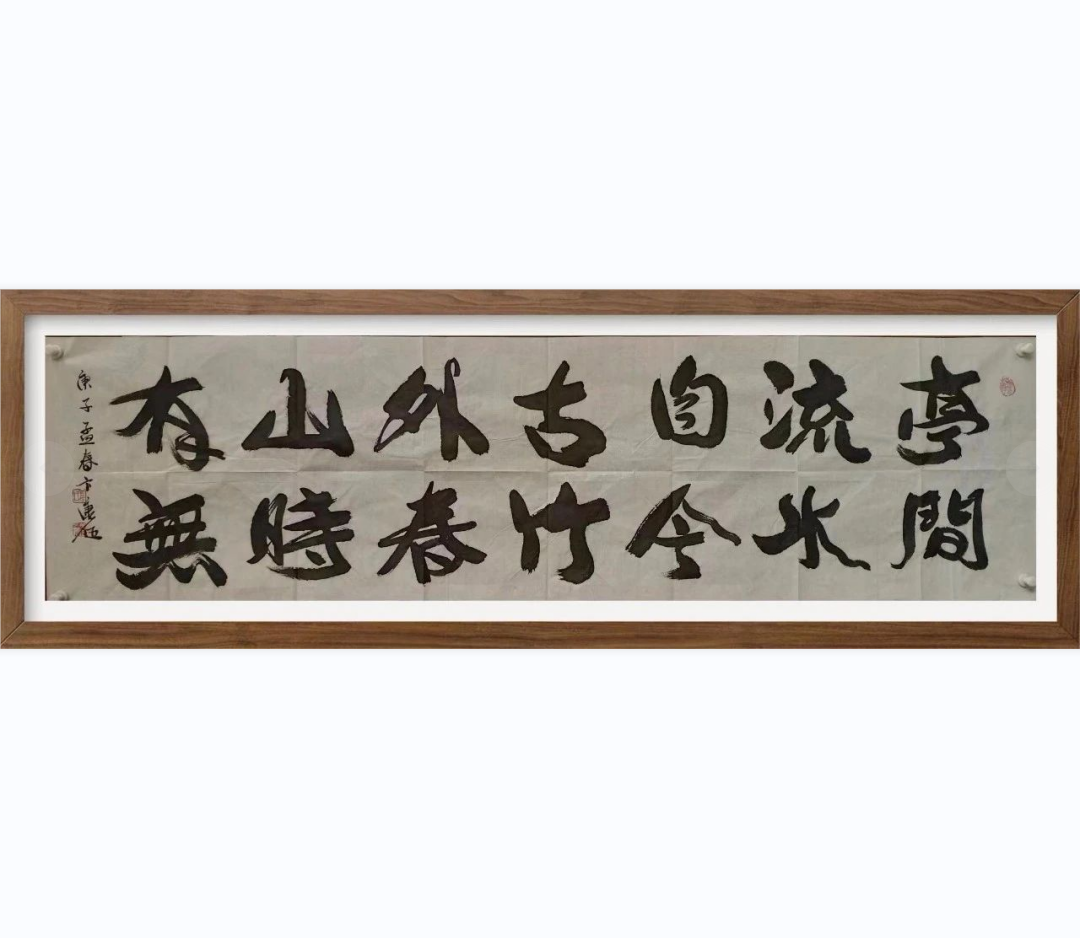 亭間
流水
自今
古竹
外春
山時
有無
庚子孟春